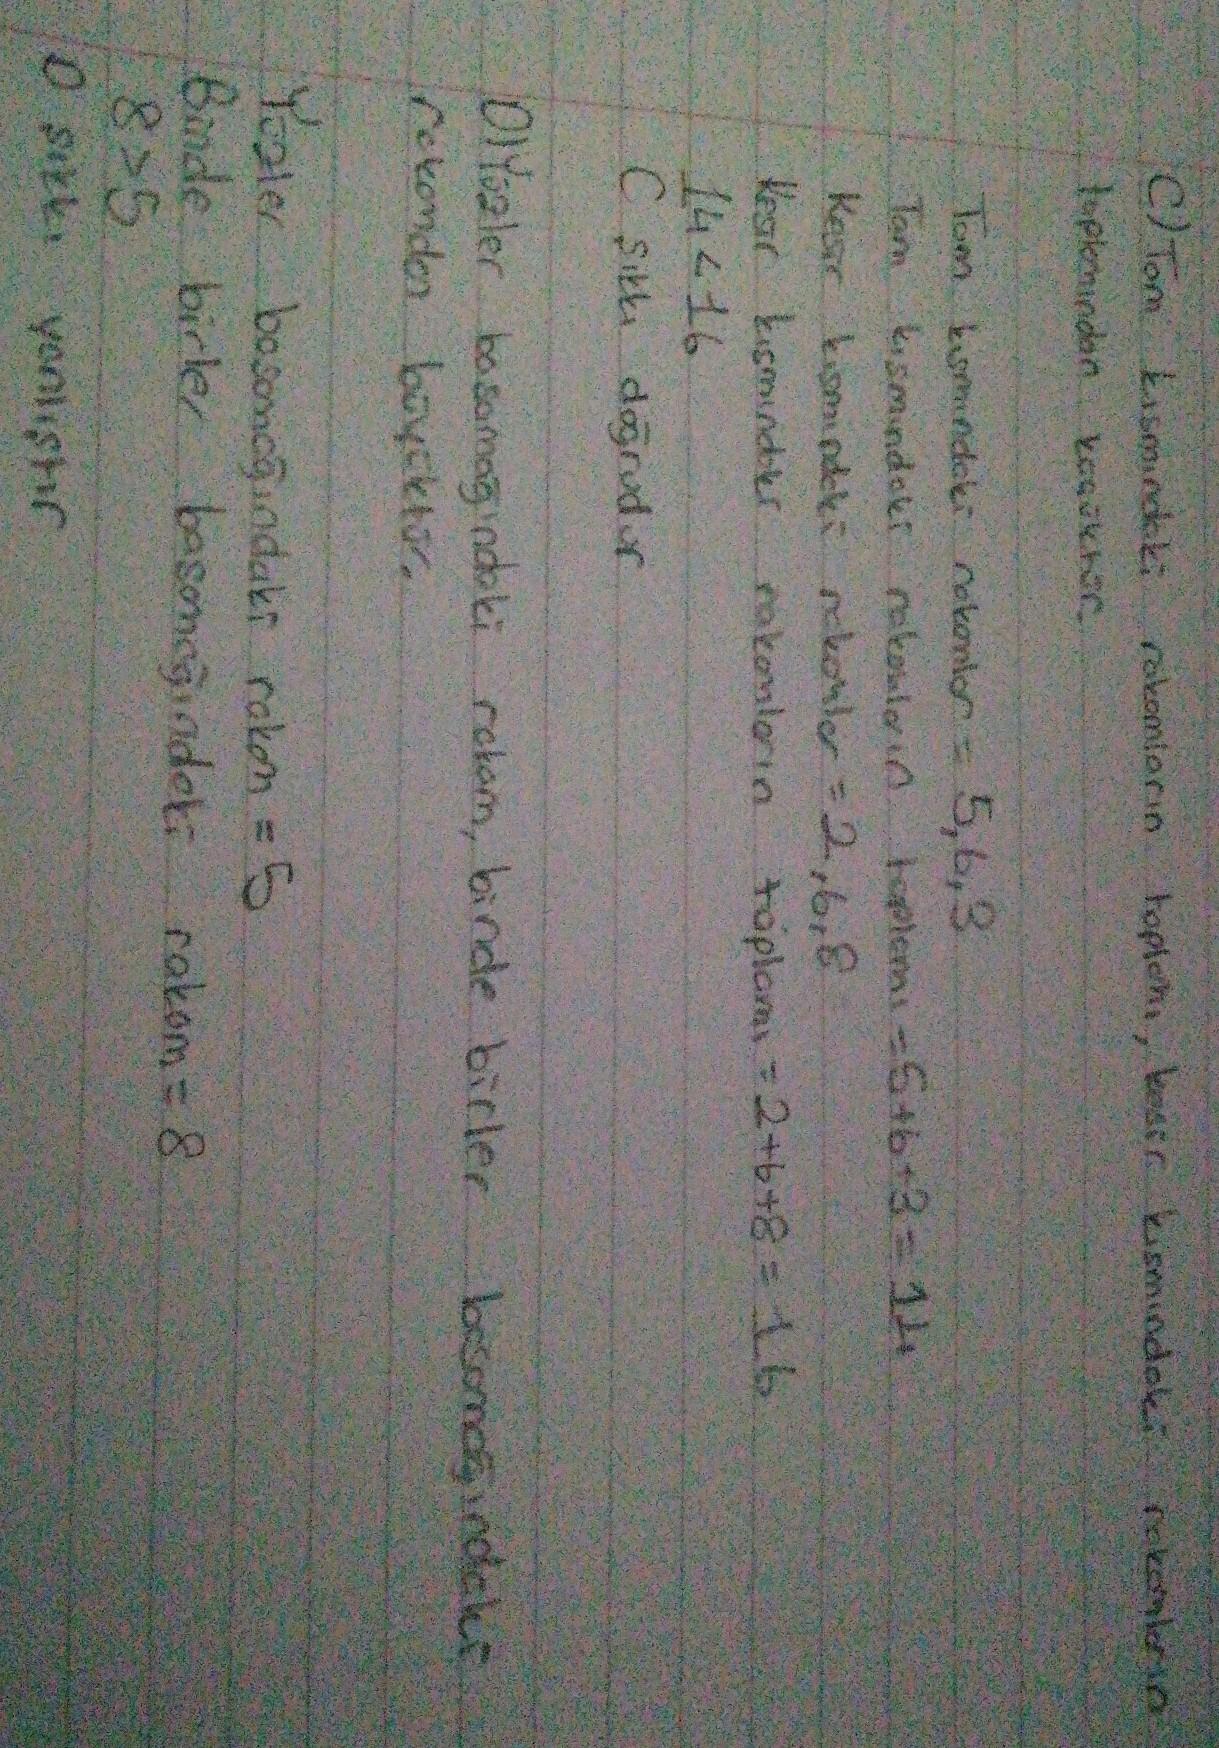 C) Tam kısmındaki rakamların toplamı, kesir kısmındaki rakamların
toplamından küçüktür.
Tam kısmındaki rakamlar = 5,6,3
Tam kısmındaki rakamların toplamı = 5+6+3 = 14
Kesir kısmındaki rakamlar = 2,6,8
Kesir kısmındaki rakamların toplamı = 2+6+8 = 16
14 < 16
C şıkkı doğrudur
D) Yüzler basamağındaki rakam, binde birler basamağındaki
rakamdan büyüktür.
Yüzler basamağındaki rakam = 5
Binde birler basamağındaki rakam = 8
8 > 5
D şıkkı yanlıştır